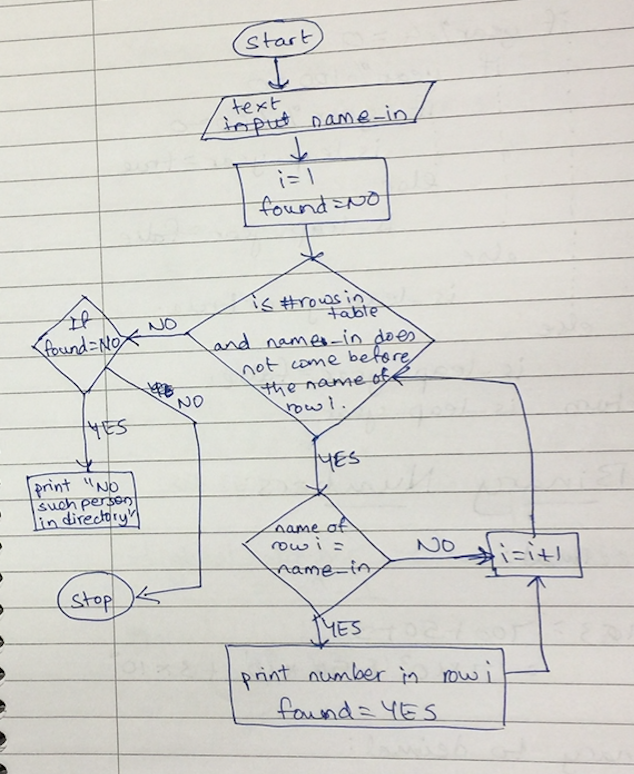 Start
text
input name_in
i=1
found=NO
i≤ #rows in
table
and name_in does
not come before
the name of
row i.
NO
If
found=NO
NO
YES
YES
print "NO
such person
in directory"
name of
row i =
name_in
NO
i=i+1
Stop
YES
print number in row i
found = YES
Binary Numbers